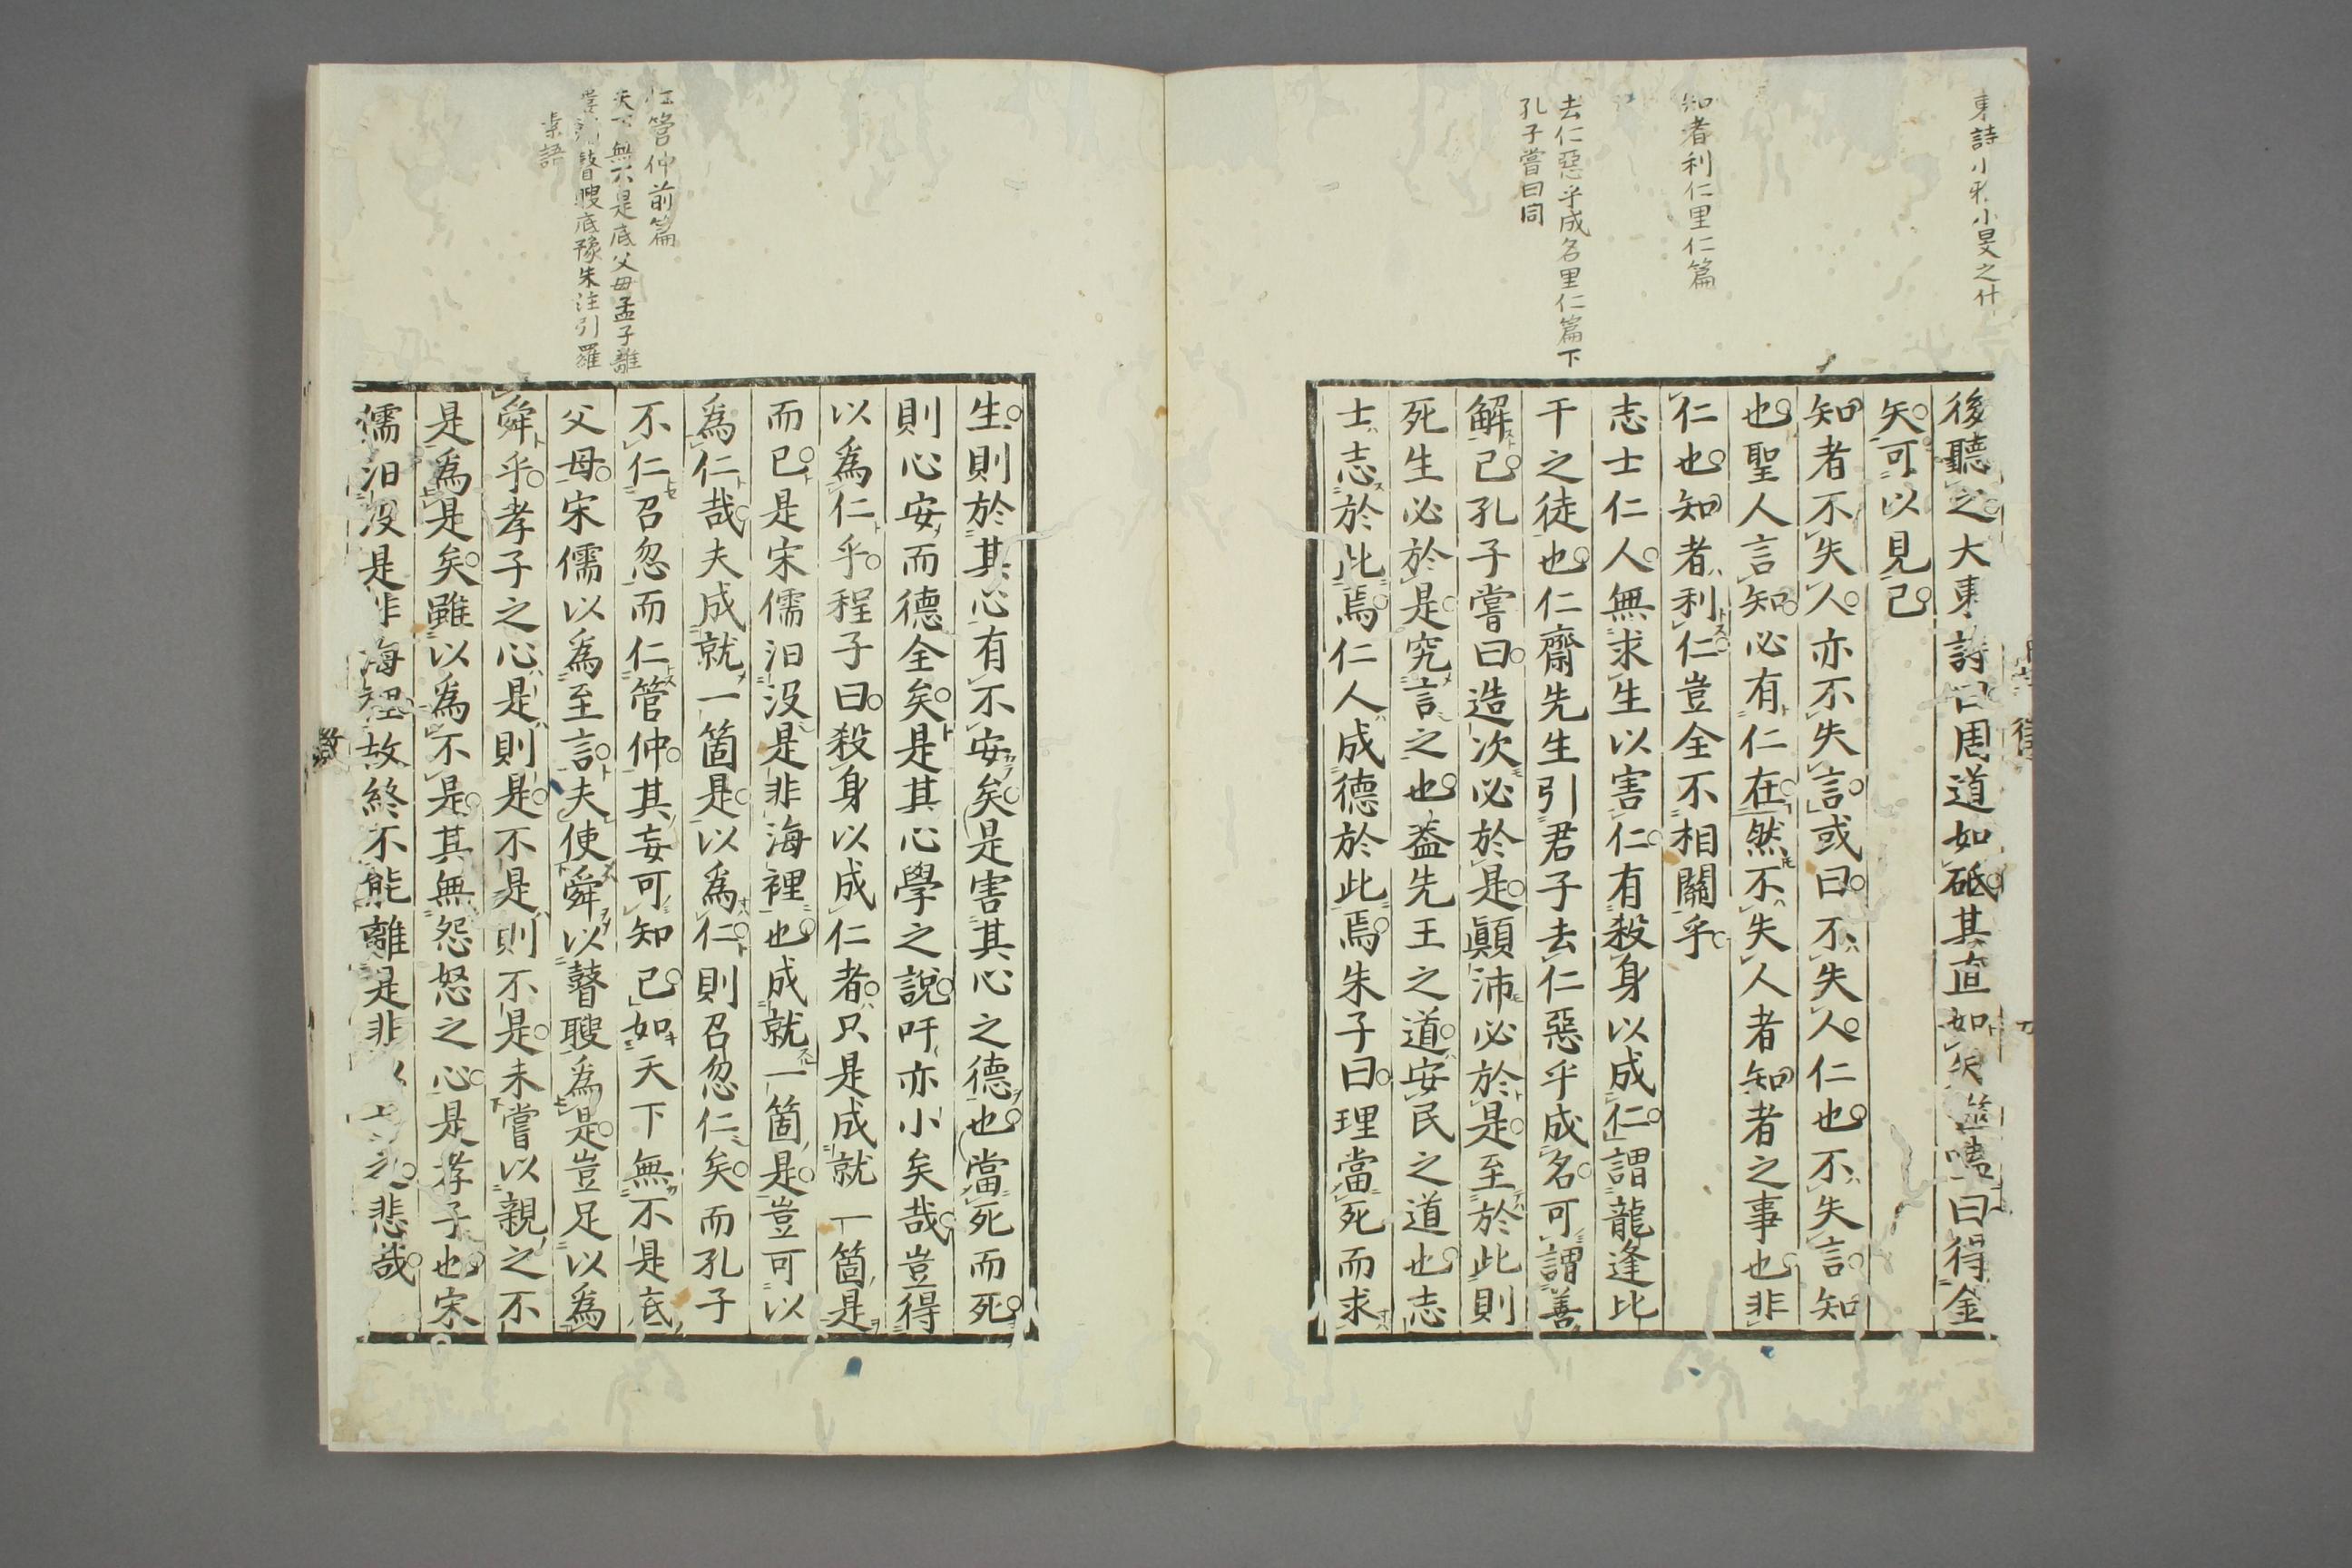 東詩小雅小旻之什
知者利仁里仁篇
去仁惡乎成名里仁篇下
孔子嘗曰同
後聽之大東詩曰周道如砥其直如矢噬嗑曰得金
矢可以見已
知者不失人亦不失言或曰不失人仁也不失言知
也聖人言知必有仁在然不失人者知者之事也非
仁也知者利仁豈全不相關乎
志士仁人無求生以害仁有殺身以成仁謂龍逢比
干之徒也仁齋先生引君子去仁惡乎成名可謂善
解已孔子嘗曰造次必於是顛沛必於是至於此則
死生必於是究言之也蓋先王之道安民之道也志
士志於此焉仁人成德於此焉朱子曰理當死而求
管仲前篇
天下無不是底父母孟子離
瞽瞍底豫朱注引羅
語
生則於其心有不安矣是害其心之德也當死而死
則心安而德全矣是其心學之說吁亦小矣哉豈得
以為仁乎程子曰殺身以成仁者只是成就一箇是
而已是宋儒汩沒是非海裡也成就一箇是豈可以
為仁哉夫成就一箇是以為仁則召忽仁矣而孔子
不仁召忽而仁管仲其妄可知已如天下無不是底
父母宋儒以為至言夫使舜以瞽瞍為是豈足以為
舜乎孝子之心是則是不是則不是未嘗以親之不
是為是矣雖以為不是其無怨怒之心是孝子也宋
儒汩沒是非海裡故終不能離是非悲哉
徵